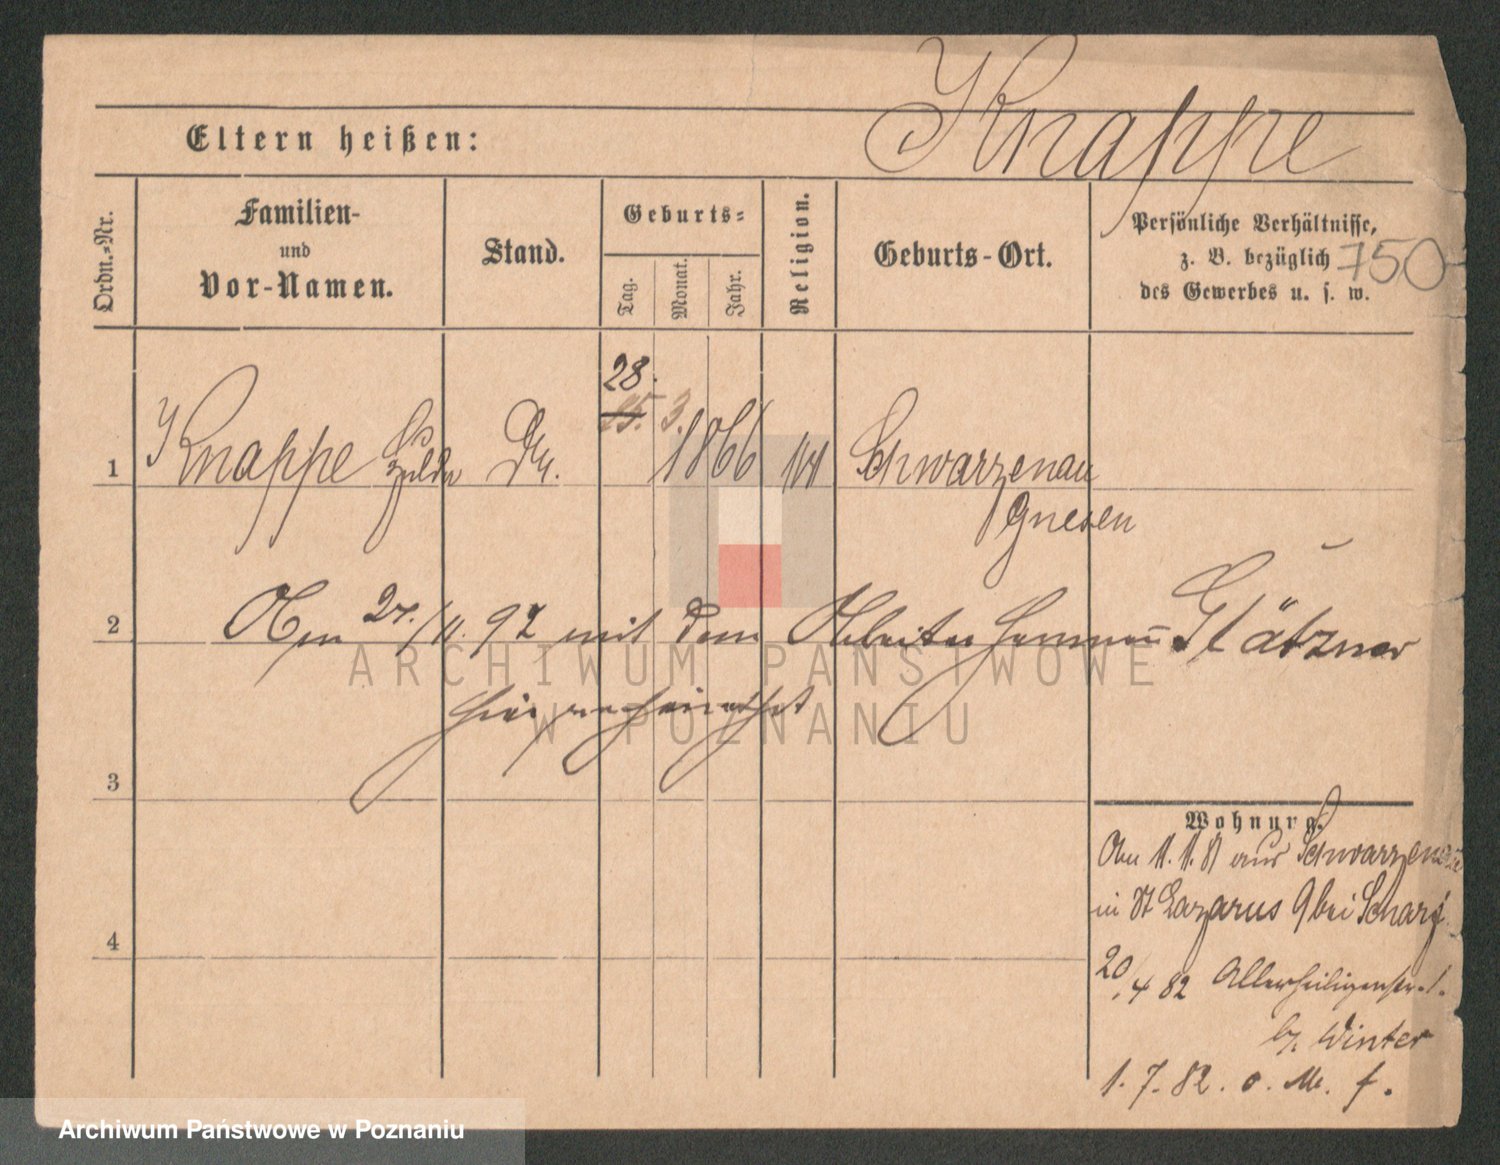 Knappe
Eltern heißen:
Ordn.-Nr.
Familien-
und
Vor-Namen.
Stand.
Geburts-
Tag.
Monat.
Jahr.
Religion.
Geburts-Ort.
Persönliche Verhältnisse,
z. B. bezüglich
des Gewerbes u. s. w.
750
28.
15. 3.
1 Knappe Hulda 1866 Schwarzenau
Gnesen
2 Am 27./11. 92 mit dem Arbeiter Hermann Glätzner
hier verheirathet
3
4
Wohnung.
Am 11.1.81 aus Schwarzenau
in St Lazarus 9 bei Scharf
20/4 82 Allerheiligenstr. 1.
b/ Winter
1. 7. 82. o. M. f.
ARCHIWUM PAŃSTWOWE
W POZNANIU
Archiwum Państwowe w Poznaniu